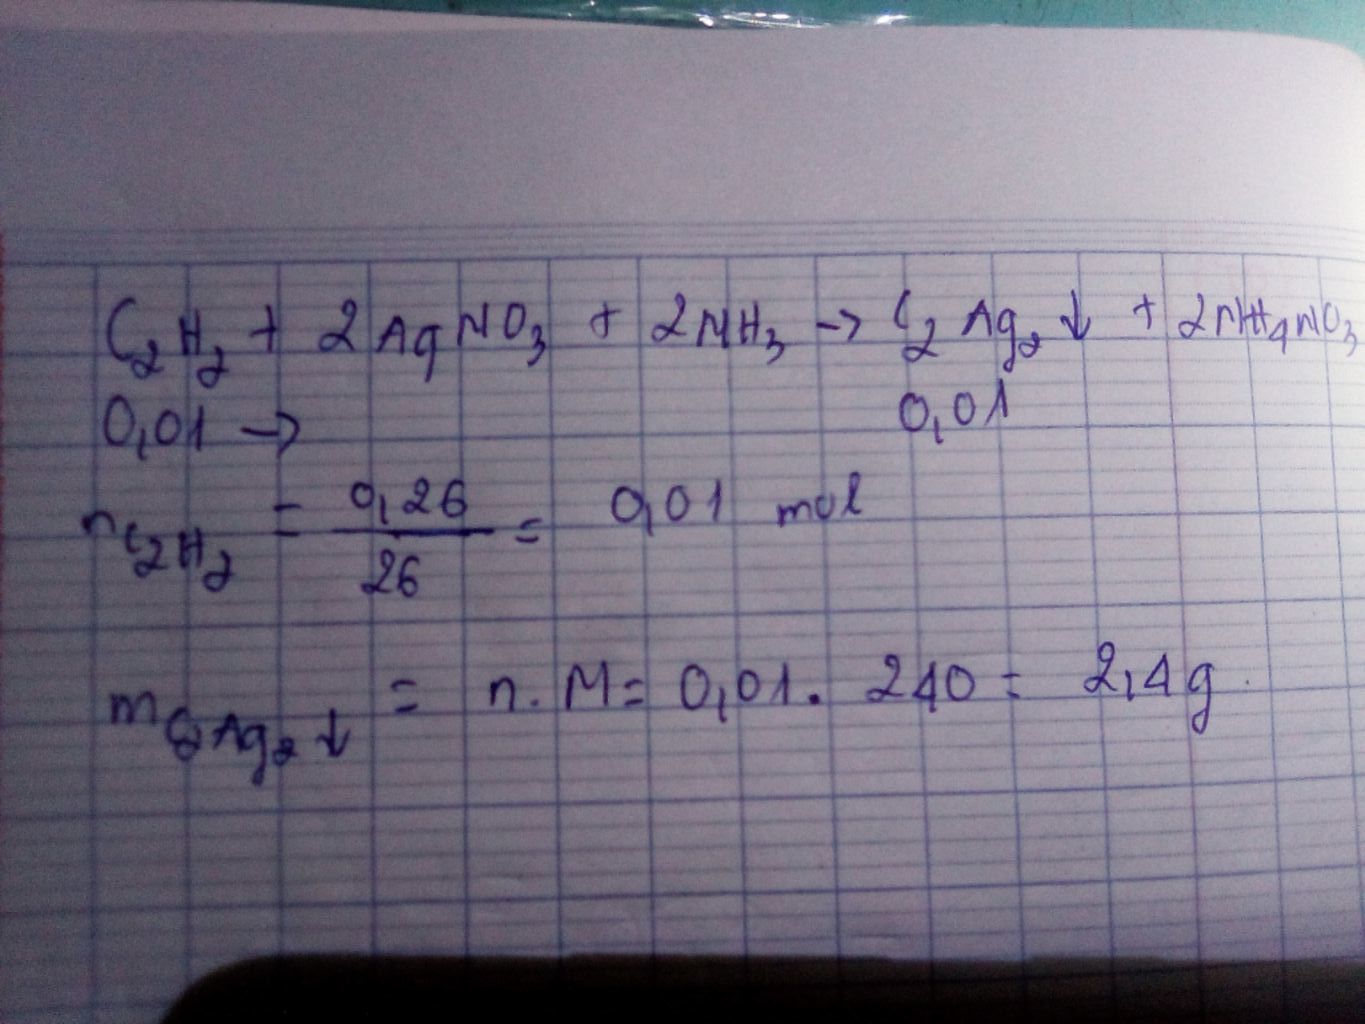 C₂H₂ + 2AgNO₃ + 2NH₃ → C₂Ag₂↓ + 2NH₄NO₃
0,01 → 0,01
nC₂H₂ = 0,26/26 = 0,01 mol
mC₂Ag₂↓ = n.M = 0,01. 240 = 2,4g.